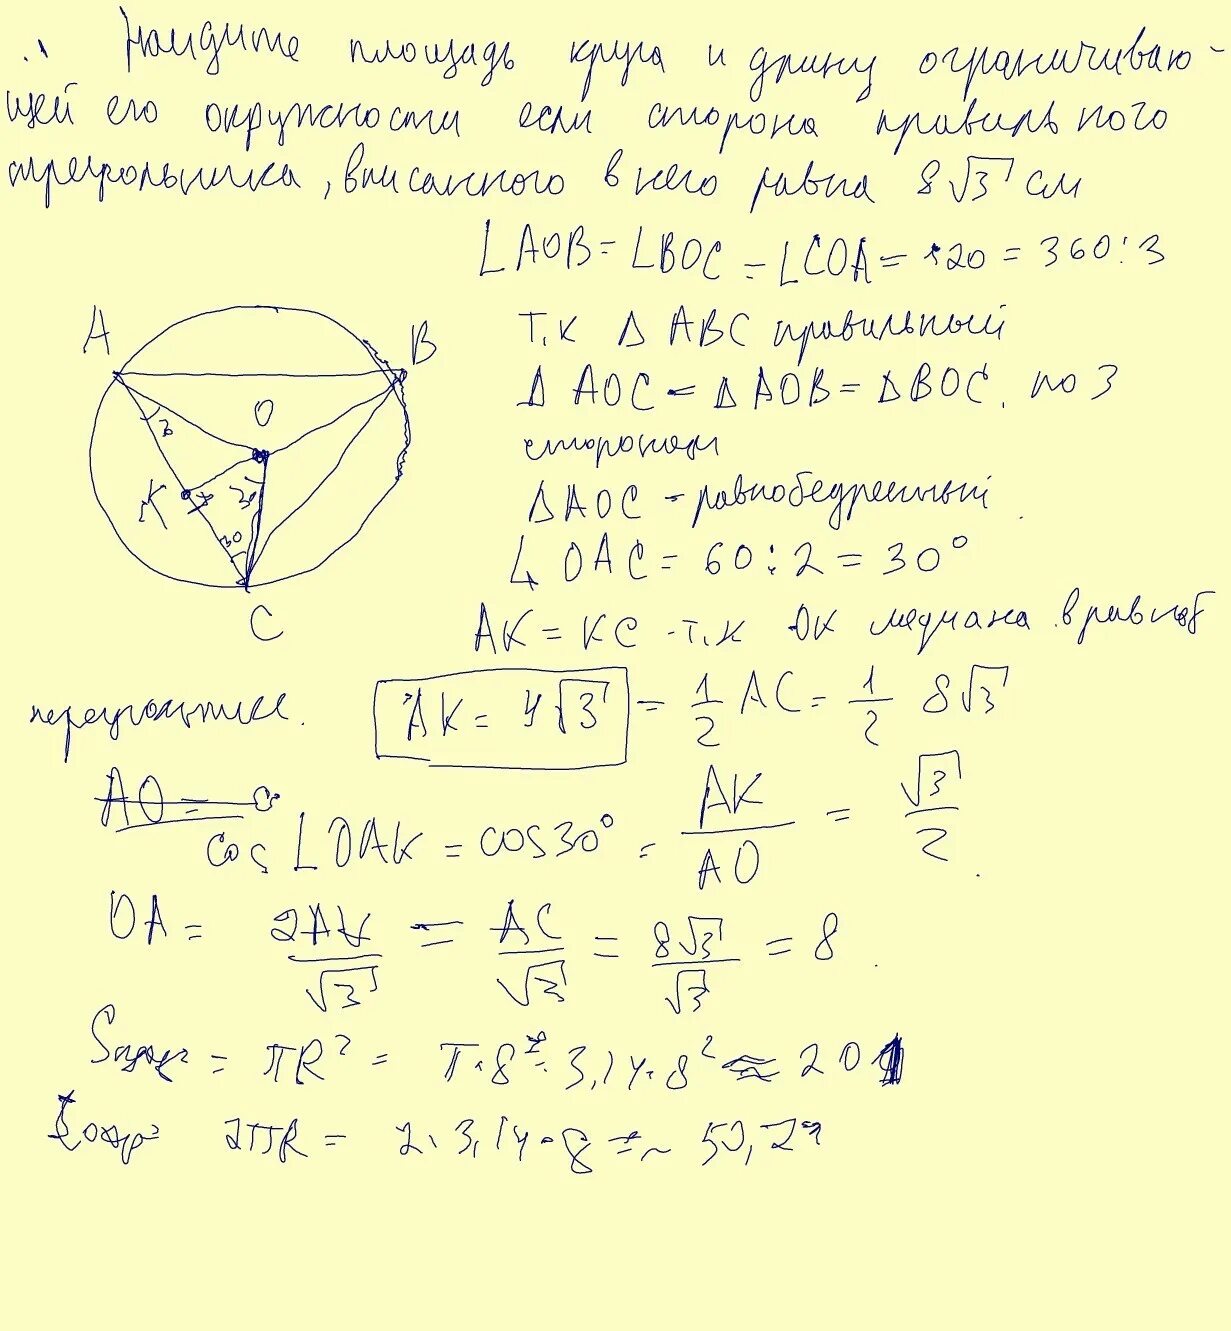 Найдите площадь круга и длину ограничиваю-
щей его окружности если сторона правильного
треугольника, вписанного в него равна 8√3 см
∠AOB = ∠BOC = ∠COA = 120 = 360:3
т.к Δ ABC правильный
Δ AOC = Δ AOB = Δ BOC по 3
сторонам
Δ AOC - равнобедренный
∠ OAC = 60:2 = 30°
AK = KC - т.к OK медиана в равноб
треугольнике.
AK = 4√3 = 1/2 AC = 1/2 8√3
AO =
cos ∠OAK = cos 30° = AK/AO = √3/2
OA = 2AK/√3 = AC/√3 = 8√3/√3 = 8
= πR² = π·8² = 3,14·8² ≈ 201
2πR = 2·3,14·8 = ~ 50,24
A
B
O
K
30
30
C